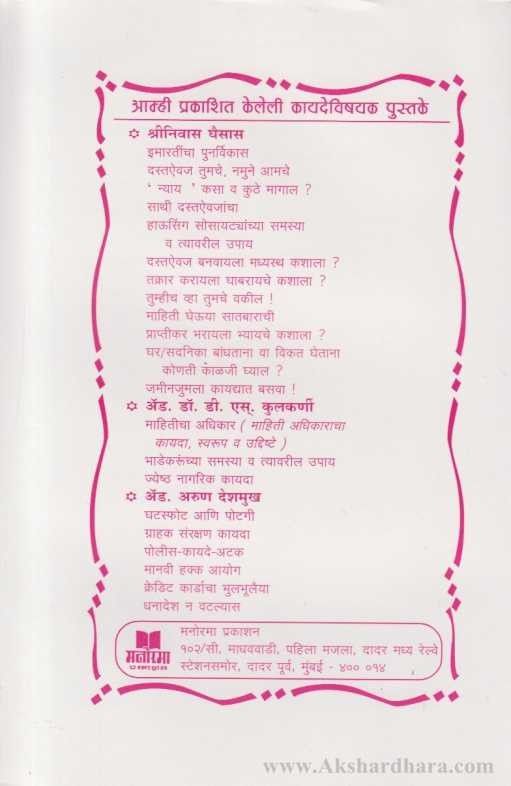 आम्ही प्रकाशित केलेली कायदेविषयक पुस्तके
श्रीनिवास घैसास
इमारतींचा पुनर्विकास
दस्तऐवज तुमचे, नमुने आमचे
‘ न्याय ’ कसा व कुठे मागाल ?
साथी दस्तऐवजांचा
हाऊसिंग सोसायट्यांच्या समस्या
व त्यावरील उपाय
दस्तऐवज बनवायला मध्यस्थ कशाला ?
तक्रार करायला घाबरायचे कशाला ?
तुम्हीच व्हा तुमचे वकील !
माहिती घेऊया सातबाराची
प्राप्तीकर भरायला भ्यायचे कशाला ?
घर/सदनिका बांधताना वा विकत घेताना
कोणती काळजी घ्याल ?
जमीनजुमला कायद्यात बसवा !
ॲड. डॉ. डी. एस्. कुलकर्णी
माहितीचा अधिकार ( माहिती अधिकाराचा
कायदा, स्वरूप व उद्दिष्टे )
भाडेकरूंच्या समस्या व त्यावरील उपाय
ज्येष्ठ नागरिक कायदा
ॲड. अरुण देशमुख
घटस्फोट आणि पोटगी
ग्राहक संरक्षण कायदा
पोलीस-कायदे-अटक
मानवी हक्क आयोग
क्रेडिट कार्डाचा भुलभूलैया
धनादेश न वटल्यास
मनोरमा प्रकाशन
१०२/सी, माधववाडी, पहिला मजला, दादर मध्य रेल्वे
स्टेशनसमोर, दादर पूर्व, मुंबई - ४०० ०१४
मनोरमा
प्रकाशन
www.Akshardhara.com